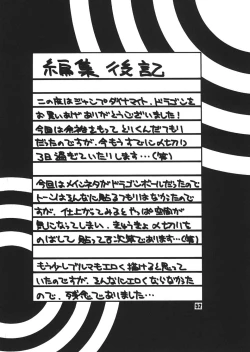 編集後記
この度はジャンプダイナマイト、ドラゴンを
お買いあげありがとうございました!
今回は余裕をもって といくんだつもり
だったのですが、今もうすでに〆切り
3日過ぎていたりします…(笑)
今回はメインネタがドラゴンボールだったので
トーンはそんなに貼るつもりはなかったので
すが、仕上がってみるとやっぱ空間が
気になってしまい、きゅうきょ〆切りを
のばして貼って3次第であります…(笑)
もう少しブルマもエロく描けると思って
いたのですが、そんなにエロくならなかった
ので、残念でありました…
33